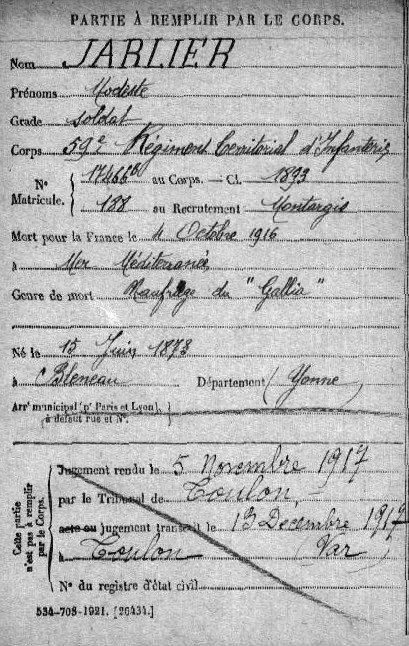 PARTIE À REMPLIR PAR LE CORPS.
Nom JARLIER
Prénoms Modeste
Grade Soldat
Corps 59e Régiment Territorial d'Infanterie
N° Matricule. { 17466b au Corps. — Cl. 1893
188 au Recrutement Montargis
Mort pour la France le 4 Octobre 1916
à Mer Méditerranée
Genre de mort Naufrage du "Gallia"
Né le 15 Juin 1873
à Bleneau Département (Yonne)
Arrt municipal (pr Paris et Lyon),
à défaut rue et N°.
Cette partie n'est pas à remplir par le Corps.
Jugement rendu le 5 Novembre 1917
par le Tribunal de Toulon,
acte ou jugement transcrit le 13 Decembre 1917
à Toulon (Var)
N° du registre d'état civil
534-708-1921. [26434.]